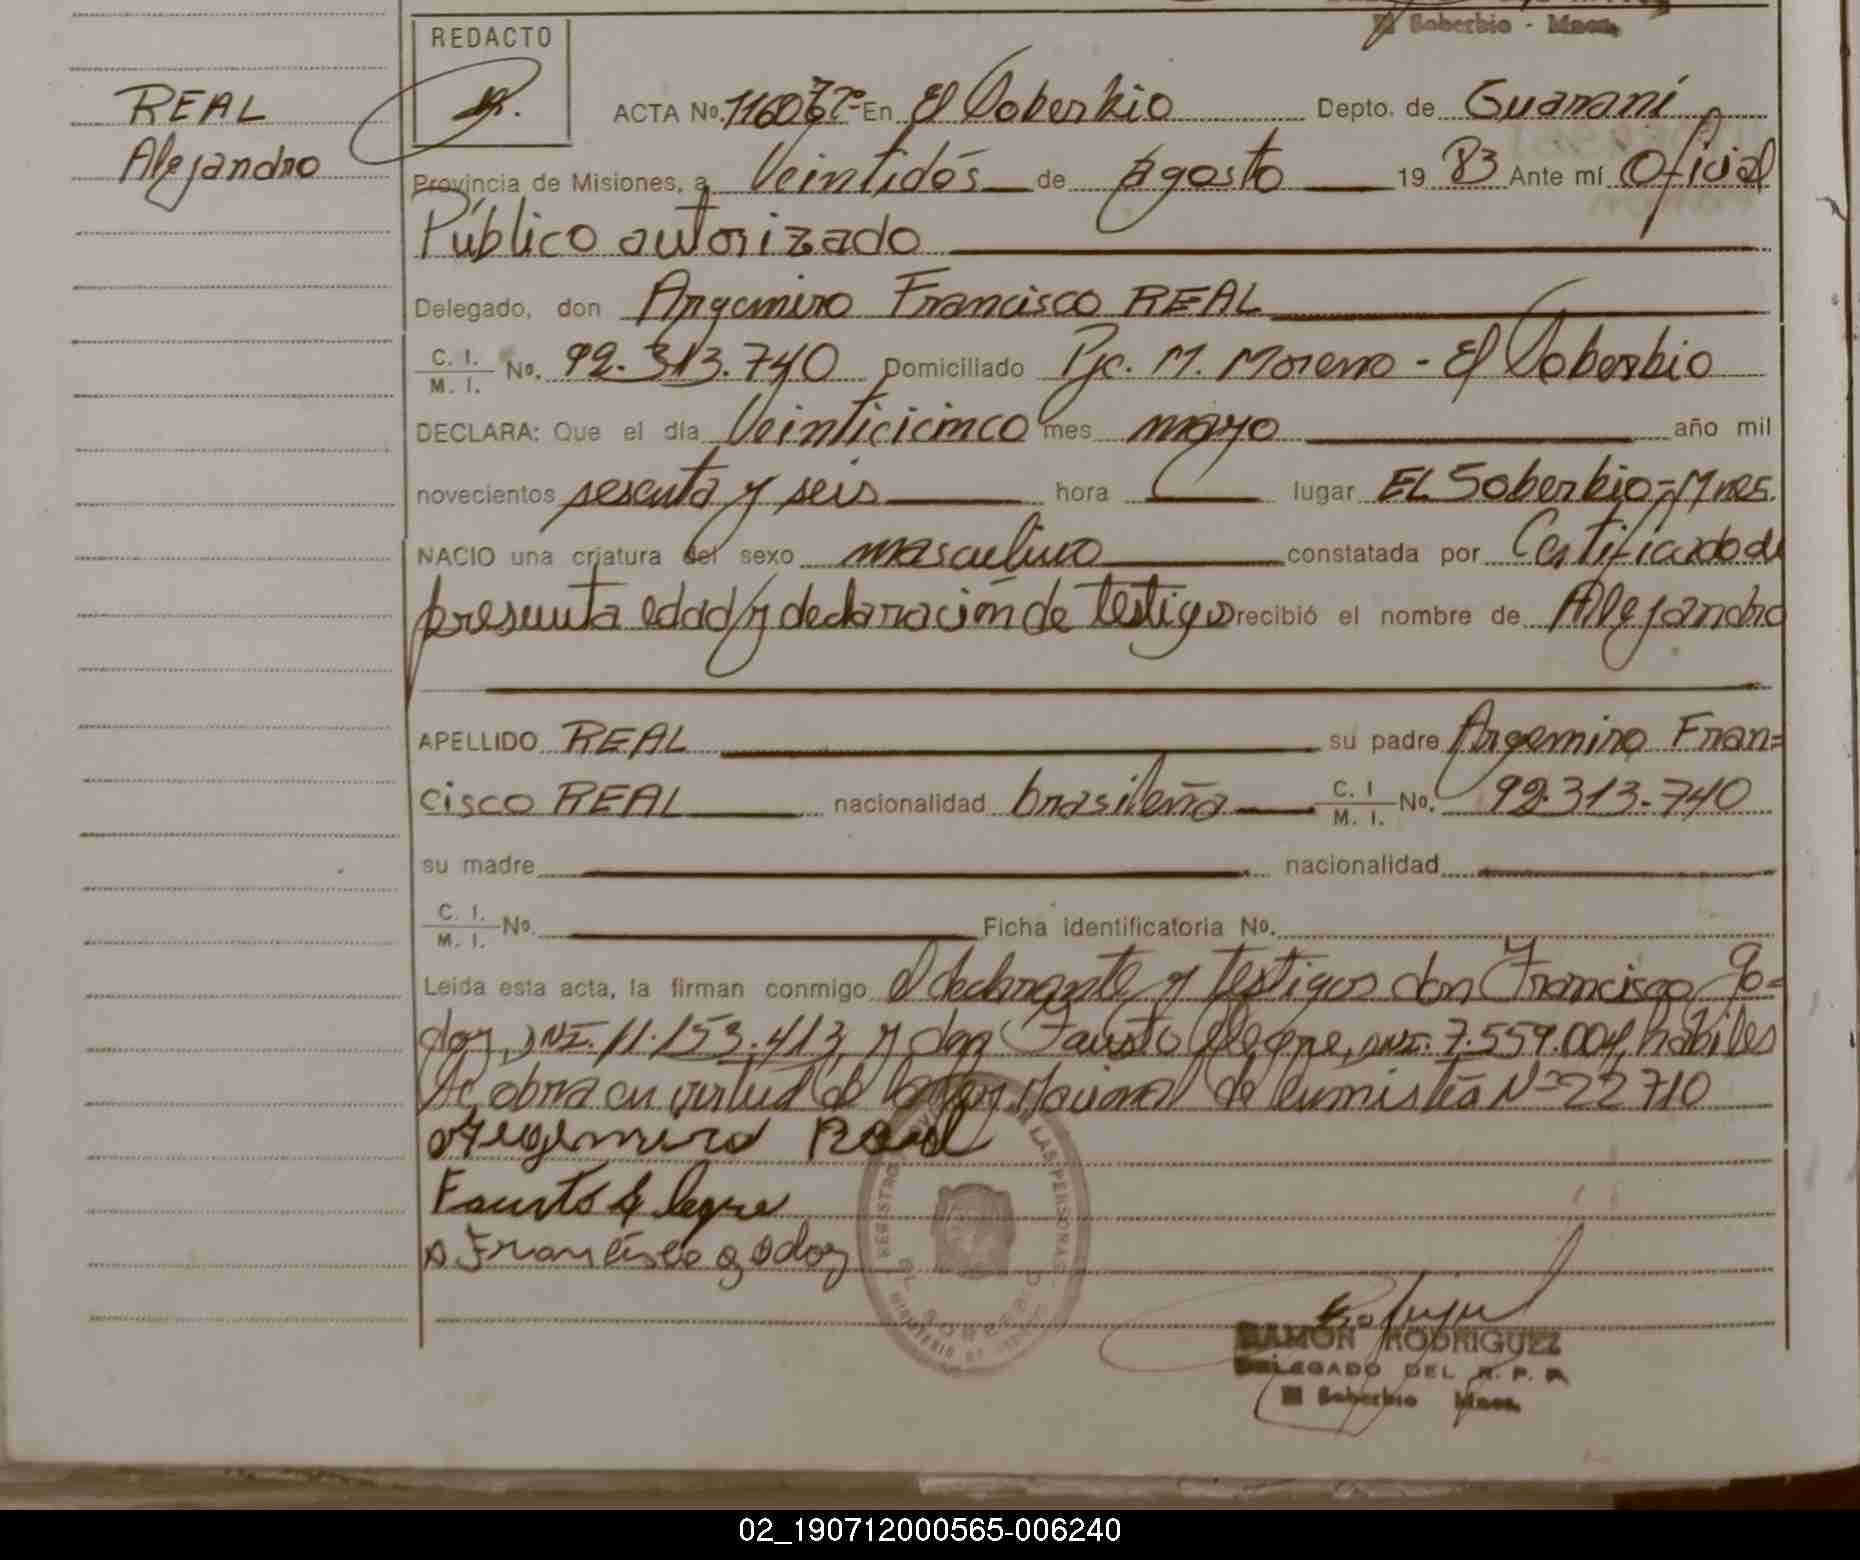 El Soberbio - Mnes.
REDACTO
REAL
Alejandro
ACTA No. En El Soberbio Depto. de Guaraní
Provincia de Misiones, a Veintidós de Agosto 19 83 Ante mí Oficial
Público autorizado
Delegado, don Argemiro Francisco REAL
C. I. M. I. No. 92.313.740 Domiciliado Pje. M. Moreno - El Soberbio
DECLARA: Que el día Veinticicinco mes mayo año mil
novecientos sesenta y seis hora lugar EL Soberbio-Mnes.
NACIO una criatura del sexo masculino constatada por Certificado de
presunta edad y declaración de testigos recibió el nombre de Alejandro
APELLIDO REAL su padre Argemiro Fran=
cisco REAL nacionalidad brasileña C. I M. I. No. 92.313.740
su madre nacionalidad
C. I. M. I. No. Ficha identificatoria No.
Leída esta acta, la firman conmigo el declarante y testigos don Francisco Go=
doy, DNI. 11.153.413 y don Fausto Alegre, DNI. 7.559.004, hábiles
Se obra en virtud de la Ley Nacional de Nº 22710
Argemiro Real
Fausto Alegre
Francisco godoy
REGISTRO LAS PERSONAS
EL SOBERBIO
RAMON RODRIGUEZ
DELEGADO DEL R. P. P.
El Soberbio Mnes.
02_190712000565-006240